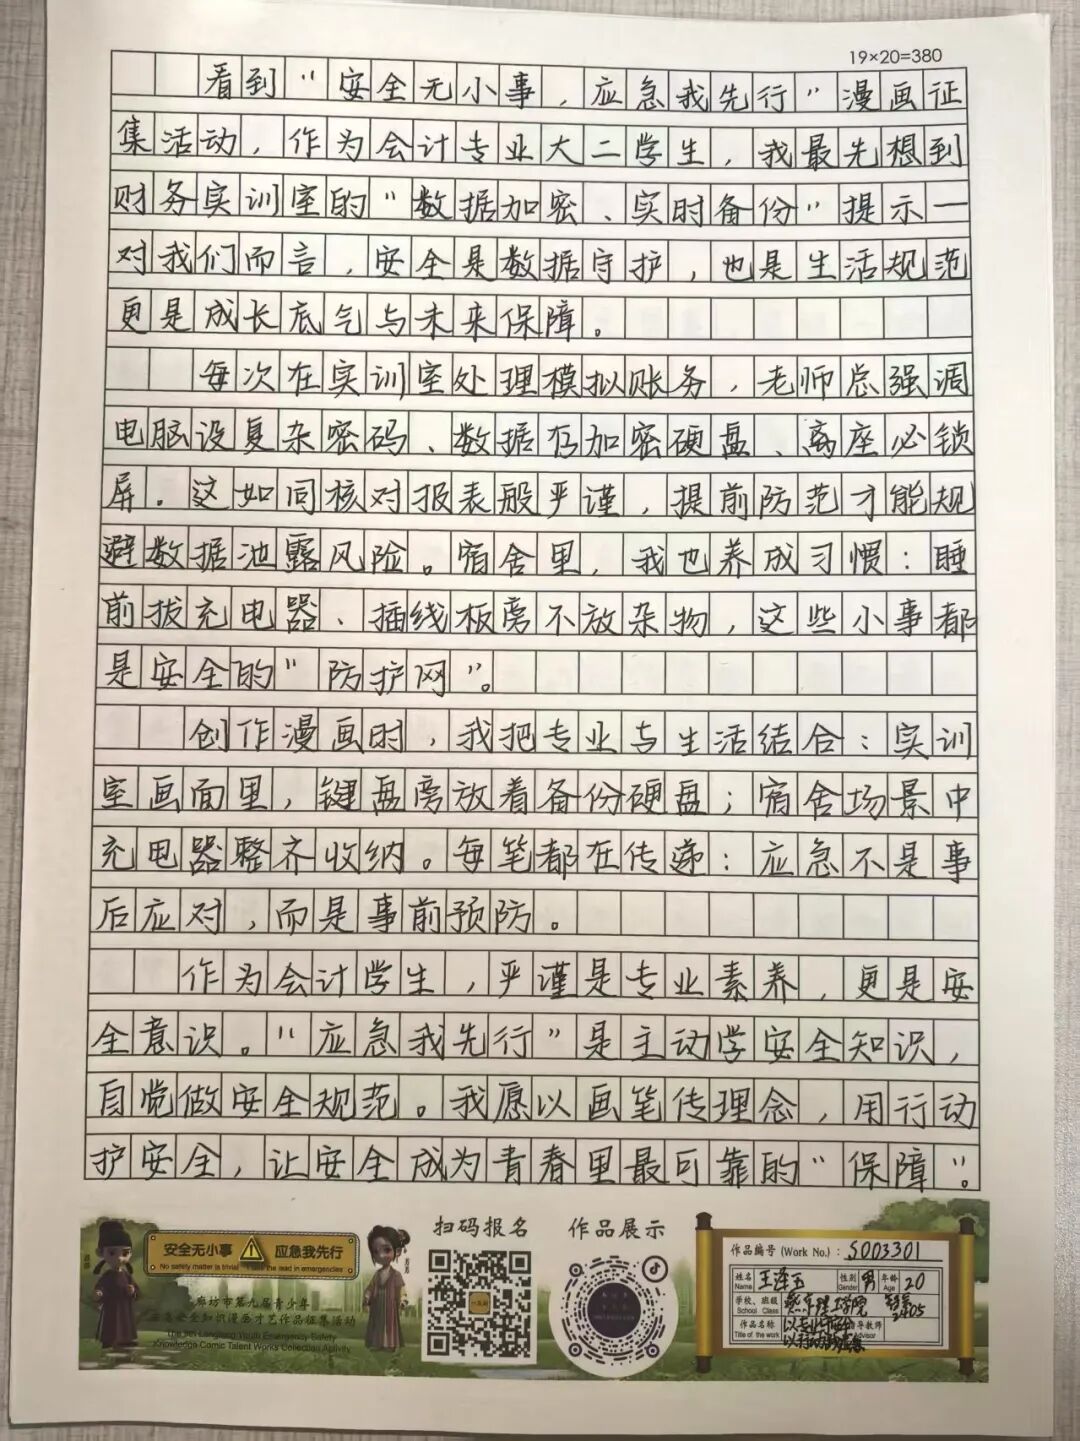 19×20=380
看到“安全无小事，应急我先行”漫画征
集活动，作为会计专业大二学生，我最先想到
财务实训室的“数据加密、实时备份”提示一
对我们而言，安全是数据守护，也是生活规范
更是成长底气与未来保障。
每次在实训室处理模拟账务，老师总强调
电脑设复杂密码、数据存加密硬盘、离座必锁
屏。这如同核对报表般严谨，提前防范才能规
避数据池露风险。宿舍里，我也养成习惯：睡
前拔充电器、插线板旁不放杂物，这些小事都
是安全的“防护网”。
创作漫画时，我把专业与生活结合：实训
室画面里，键盘旁放着备份硬盘；宿舍场景中
充电器整齐收纳。每笔都在传递：应急不是事
后应对，而是事前预防。
作为会计学生，严谨是专业素养，更是安
全意识。“应急我先行”是主动学安全知识，
自觉做安全规范。我愿以画笔传理念，用行动
护安全，让安全成为青春里最可靠的“保障”。
安全无小事 应急我先行
No safety matter is trivial I take the lead in emergencies
廊坊市第九届青少年
应急安全知识漫画才艺作品征集活动
The 9th Langfang Youth Emergency Safety
Knowledge Comic Talent Works Collection Activity
扫码报名 作品展示
作品编号 (Work No.)：S003301
姓名 Name 王泽玉 性别 Gender 男 年龄 Age 20
学校、班级 School Class 燕京理工学院
作品名称 Title of the work 指导教师 Advisor